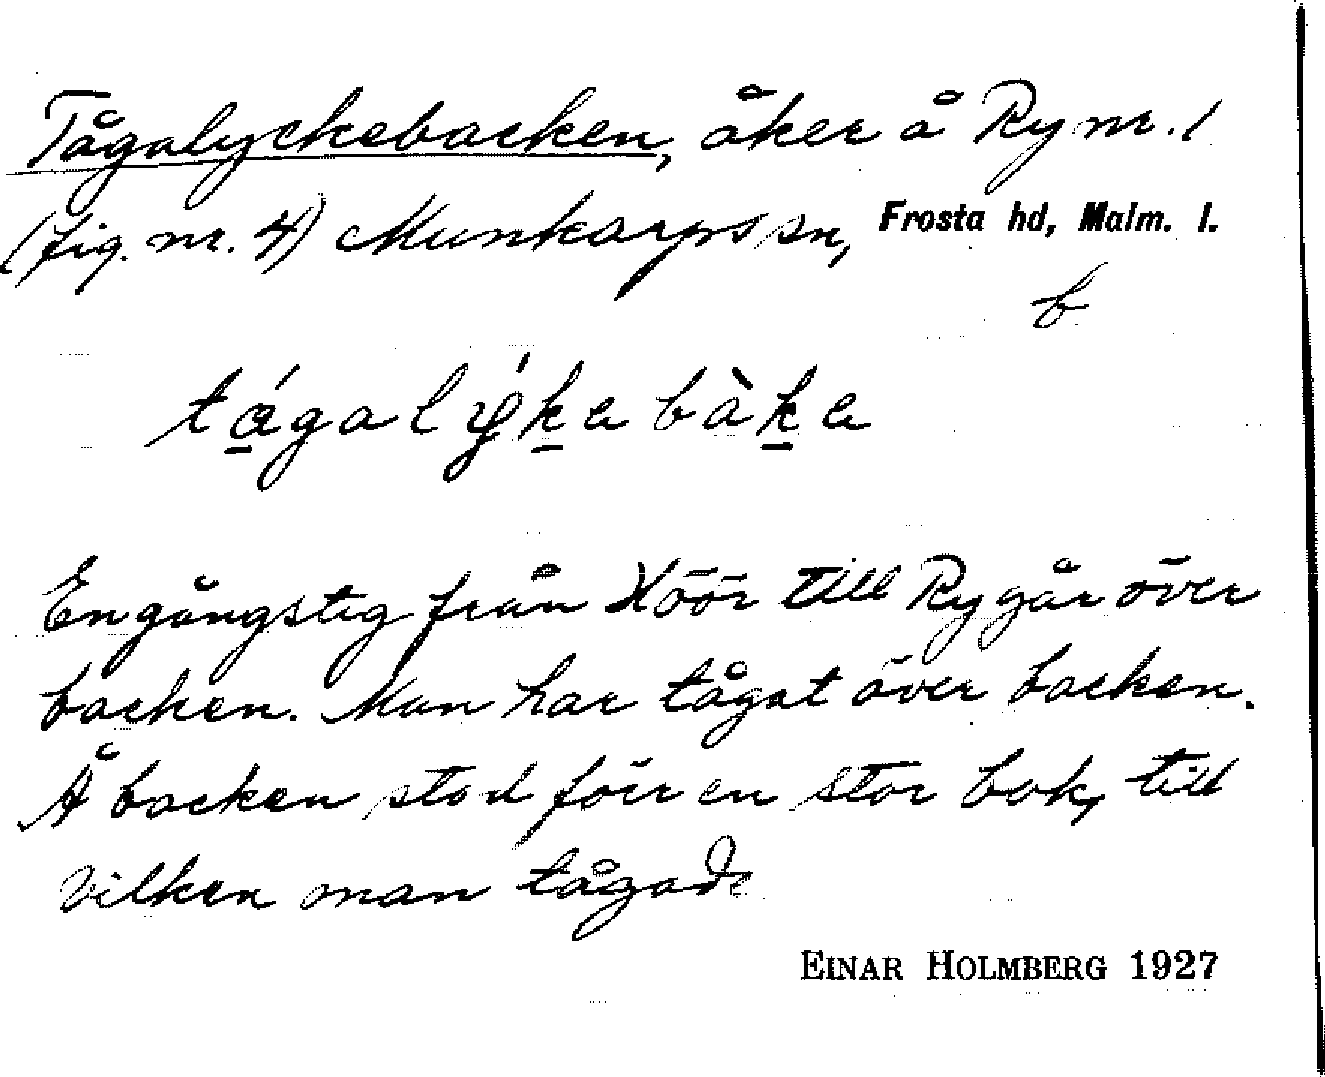 Tågalyckebacken, åker å Ry nr. 1
(fig. nr. 4) Munkarps sn, Frosta hd, Malm. l.
b
En gångstig från Höör till Ry går över
backen. Man har tågat över backen.
Å backen stod förr en stor bok, till
vilken man tågade
EINAR HOLMBERG 1927